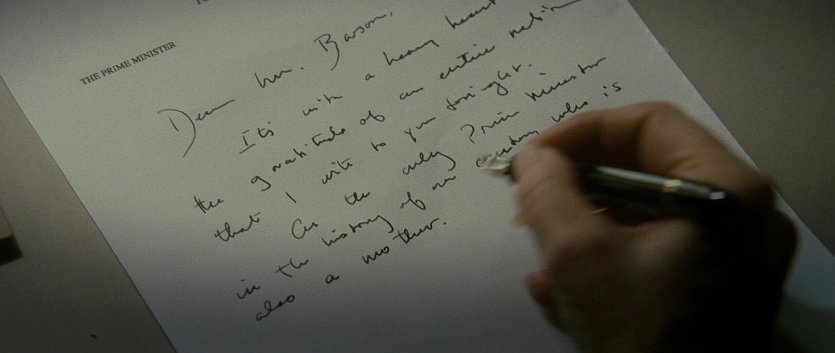 THE PRIME MINISTER
Dear Mr. Barson,
Its with a heavy heart
the gratitude of an entire nation
that I write to you tonight.
As the only Prime Minister
in the history of our country who is
also a mother.